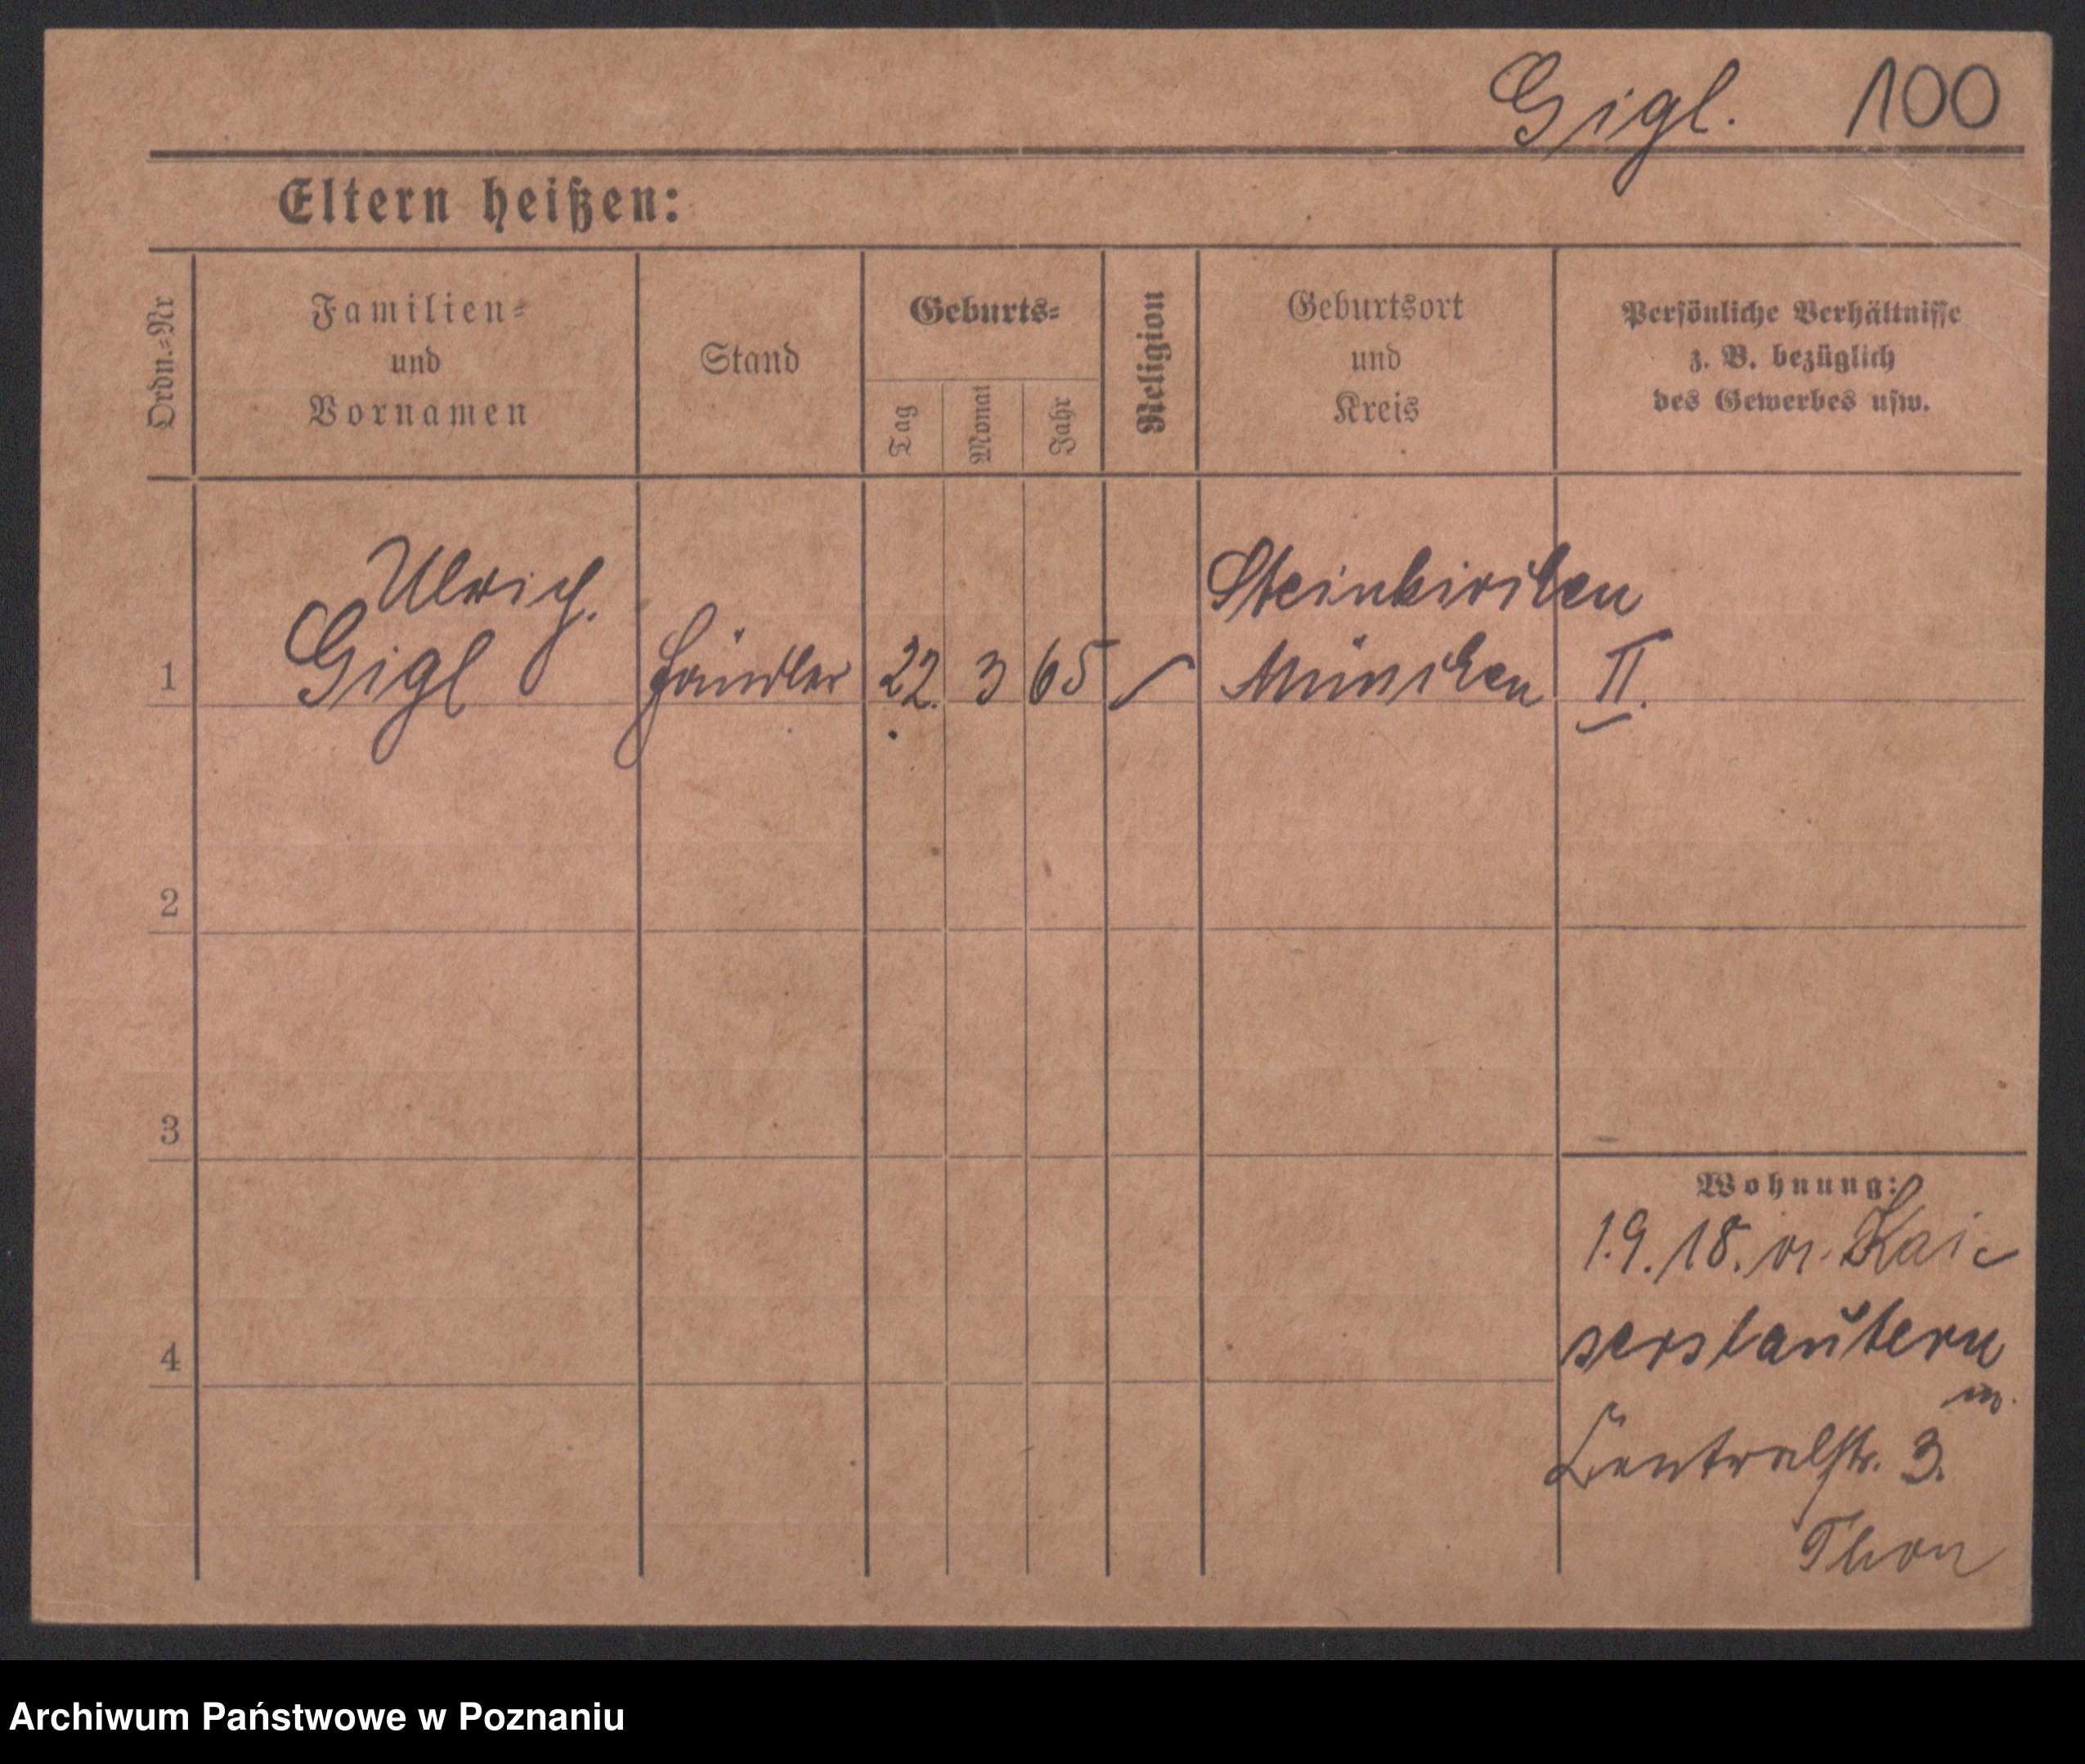 Gigl. 100
Eltern heißen:
Ordn.=Nr
Familien=
und
Vornamen
Stand
Geburts=
Tag
Monat
Jahr
Religion
Geburtsort
und
Kreis
Persönliche Verhältnisse
z. B. bezüglich
des Gewerbes usw.
Ulrich.
Steinkirchen
1 Gigl Händler 22. 3 65 München II.
2
3
4
Wohnung:
1.9.18. n. Kai-
serslautern
Zentralstr. 3.
Thon
Archiwum Państwowe w Poznaniu